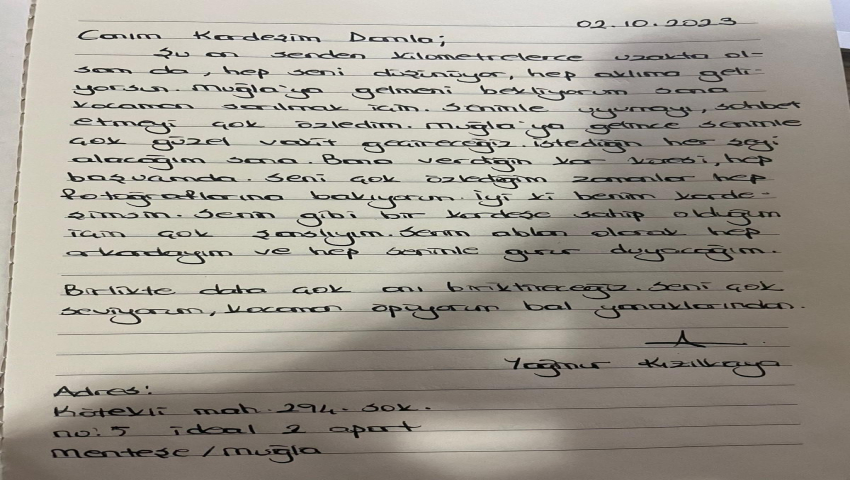 02.10.2023
Canım Kardeşim Damla;
Şu an senden kilometrelerce uzakta ol-
sam da, hep seni düşünüyor, hep aklıma geli-
yorsun. Muğla'ya gelmeni bekliyorum sana
kocaman sarılmak için. Seninle uyumayı, sohbet
etmeyi çok özledim. Muğla'ya gelince seninle
çok güzel vakit geçireceğiz. istediğin her şeyi
alacağım sana. Bana verdiğin kar küresi, hep
başucumda. Seni çok özlediğim zamanlar hep
fotoğraflarına bakıyorum. İyi ki benim karde-
şimsin. Senin gibi bir kardeşe sahip olduğum
için çok şanslıyım. Senin ablan olarak hep
arkandayım ve hep seninle gurur duyacağım.
Birlikte daha çok anı biriktireceğiz. Seni çok
seviyorum, kocaman öpüyorum bal yanaklarından.
Yağmur Kızılkaya
Adres:
Kötekli mah. 294. sok.
no: 5 ideal 2 apart
menteşe / muğla